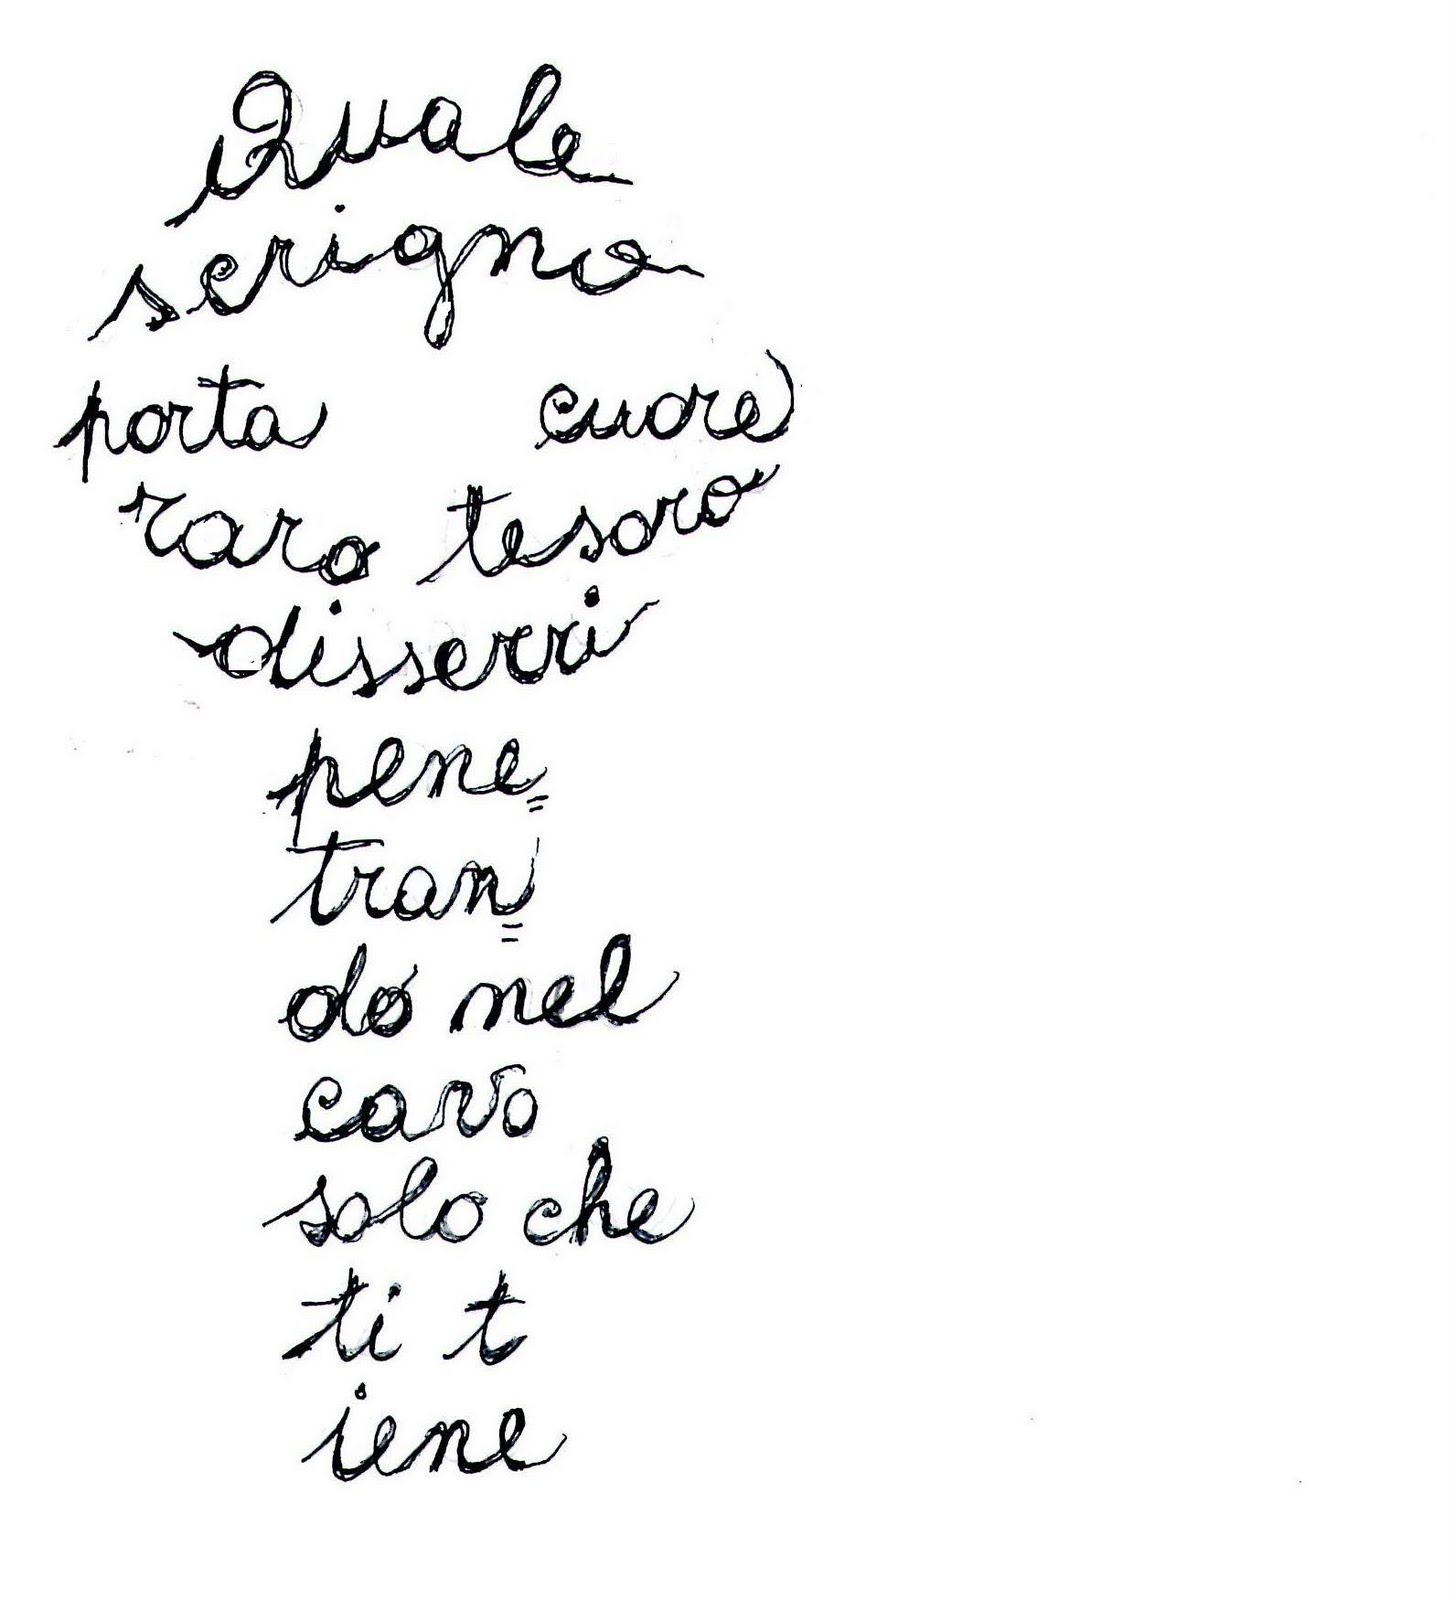 Quale
scrigno
porta cuore
raro tesoro
disserri
pene=
tran=
do nel
cavo
solo che
ti t
iene